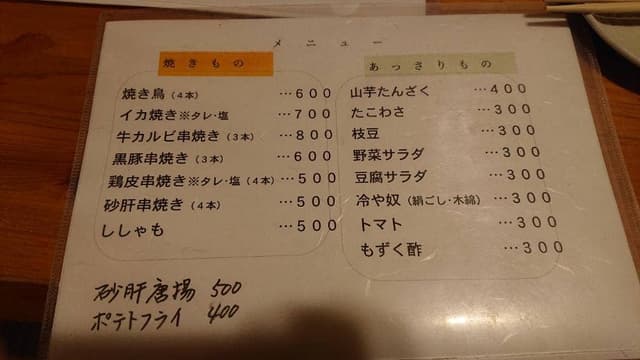 メニュー
焼きもの
焼き鳥（４本） …６００
イカ焼き※タレ･塩 …７００
牛カルビ串焼き（３本） …８００
黒豚串焼き（３本） …６００
鶏皮串焼き※タレ･塩（４本） …５００
砂肝串焼き（４本） …５００
ししゃも …５００
砂肝唐揚 500
ポテトフライ 400
あっさりもの
山芋たんざく …４００
たこわさ …３００
枝豆 …３００
野菜サラダ …３００
豆腐サラダ …３００
冷や奴（絹ごし･木綿） …３００
トマト …３００
もずく酢 …３００